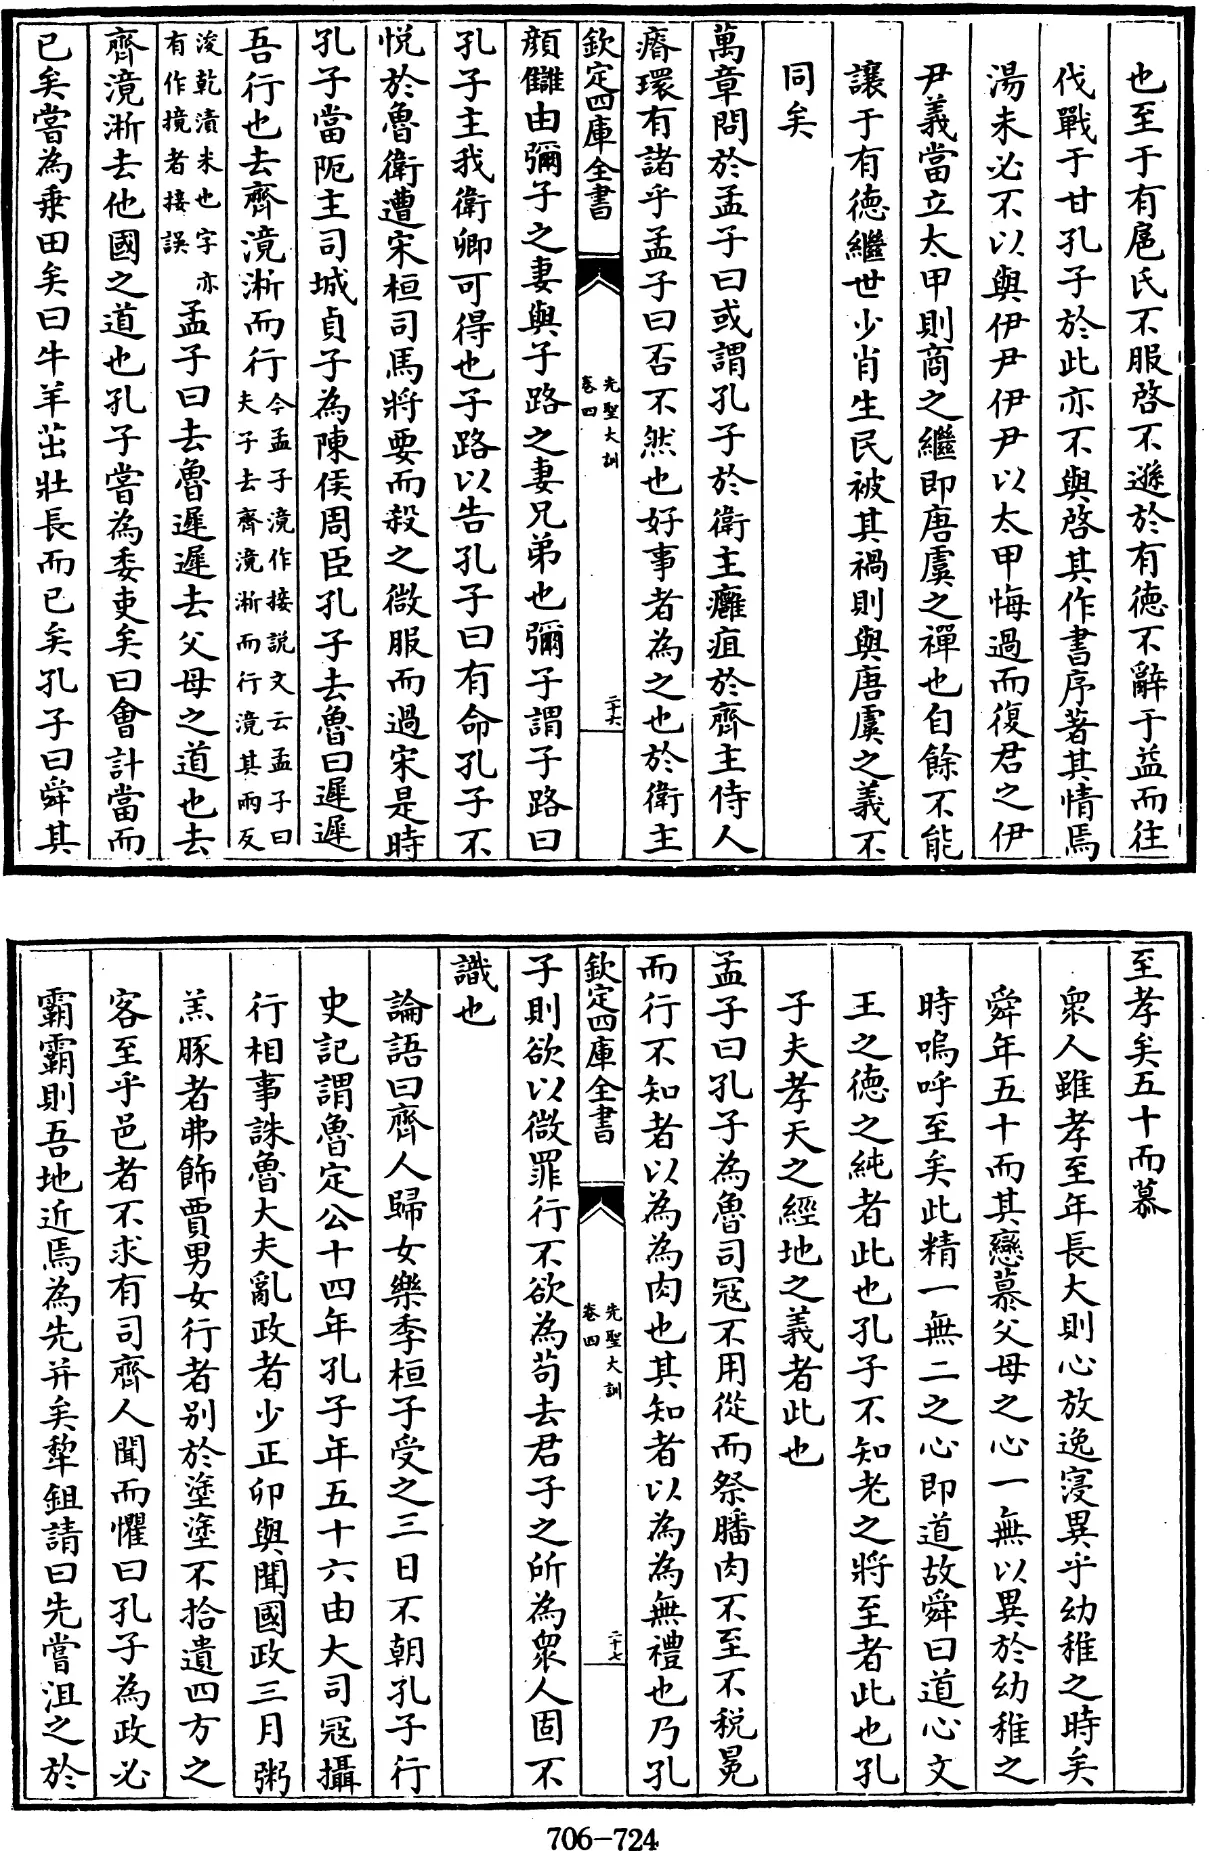 也至于有扈氏不服啓不遜於有德不辭于益而往
伐戰于甘孔子於此亦不與啓其作書序著其情焉
湯未必不以與伊尹伊尹以太甲悔過而復君之伊
尹義當立太甲則商之繼即唐虞之禪也自餘不能
讓于有德繼世少肖生民被其禍則與唐虞之義不
同矣
萬章問於孟子曰或謂孔子於衛主癰疽於齊主侍人
瘠環有諸乎孟子曰否不然也好事者為之也於衛主
欽定四庫全書
先聖大訓
卷四
二十六
顏讎由彌子之妻與子路之妻兄弟也彌子謂子路曰
孔子主我衛卿可得也子路以告孔子曰有命孔子不
悅於魯衛遭宋桓司馬將要而殺之微服而過宋是時
孔子當阨主司城貞子為陳侯周臣孔子去魯曰遲遲
吾行也去齊滰淅而行今孟子滰作接說文云孟子曰
夫子去齊滰淅而行滰其兩反
浚乾漬米也字亦
有作㨘者接誤
孟子曰去魯遲遲去父母之道也去
齊滰淅去他國之道也孔子嘗為委吏矣曰會計當而
已矣嘗為乗田矣曰牛羊茁壯長而已矣孔子曰舜其
至孝矣五十而慕
衆人雖孝至年長大則心放逸寖異乎幼稚之時矣
舜年五十而其戀慕父母之心一無以異於幼稚之
時嗚呼至矣此精一無二之心即道故舜曰道心文
王之德之純者此也孔子不知老之將至者此也孔
子夫孝天之經地之義者此也
孟子曰孔子為魯司冦不用從而祭膰肉不至不税冕
而行不知者以為為肉也其知者以為為無禮也乃孔
欽定四庫全書
先聖大訓
卷四
二十七
子則欲以微罪行不欲為苟去君子之所為衆人固不
識也
論語曰齊人歸女樂季桓子受之三日不朝孔子行
史記謂魯定公十四年孔子年五十六由大司冦攝
行相事誅魯大夫亂政者少正卯與聞國政三月粥
羔豚者弗飾賈男女行者别於塗塗不拾遺四方之
客至乎邑者不求有司齊人聞而懼曰孔子為政必
霸霸則吾地近焉為先并矣犂鉏請曰先嘗沮之於
706-724